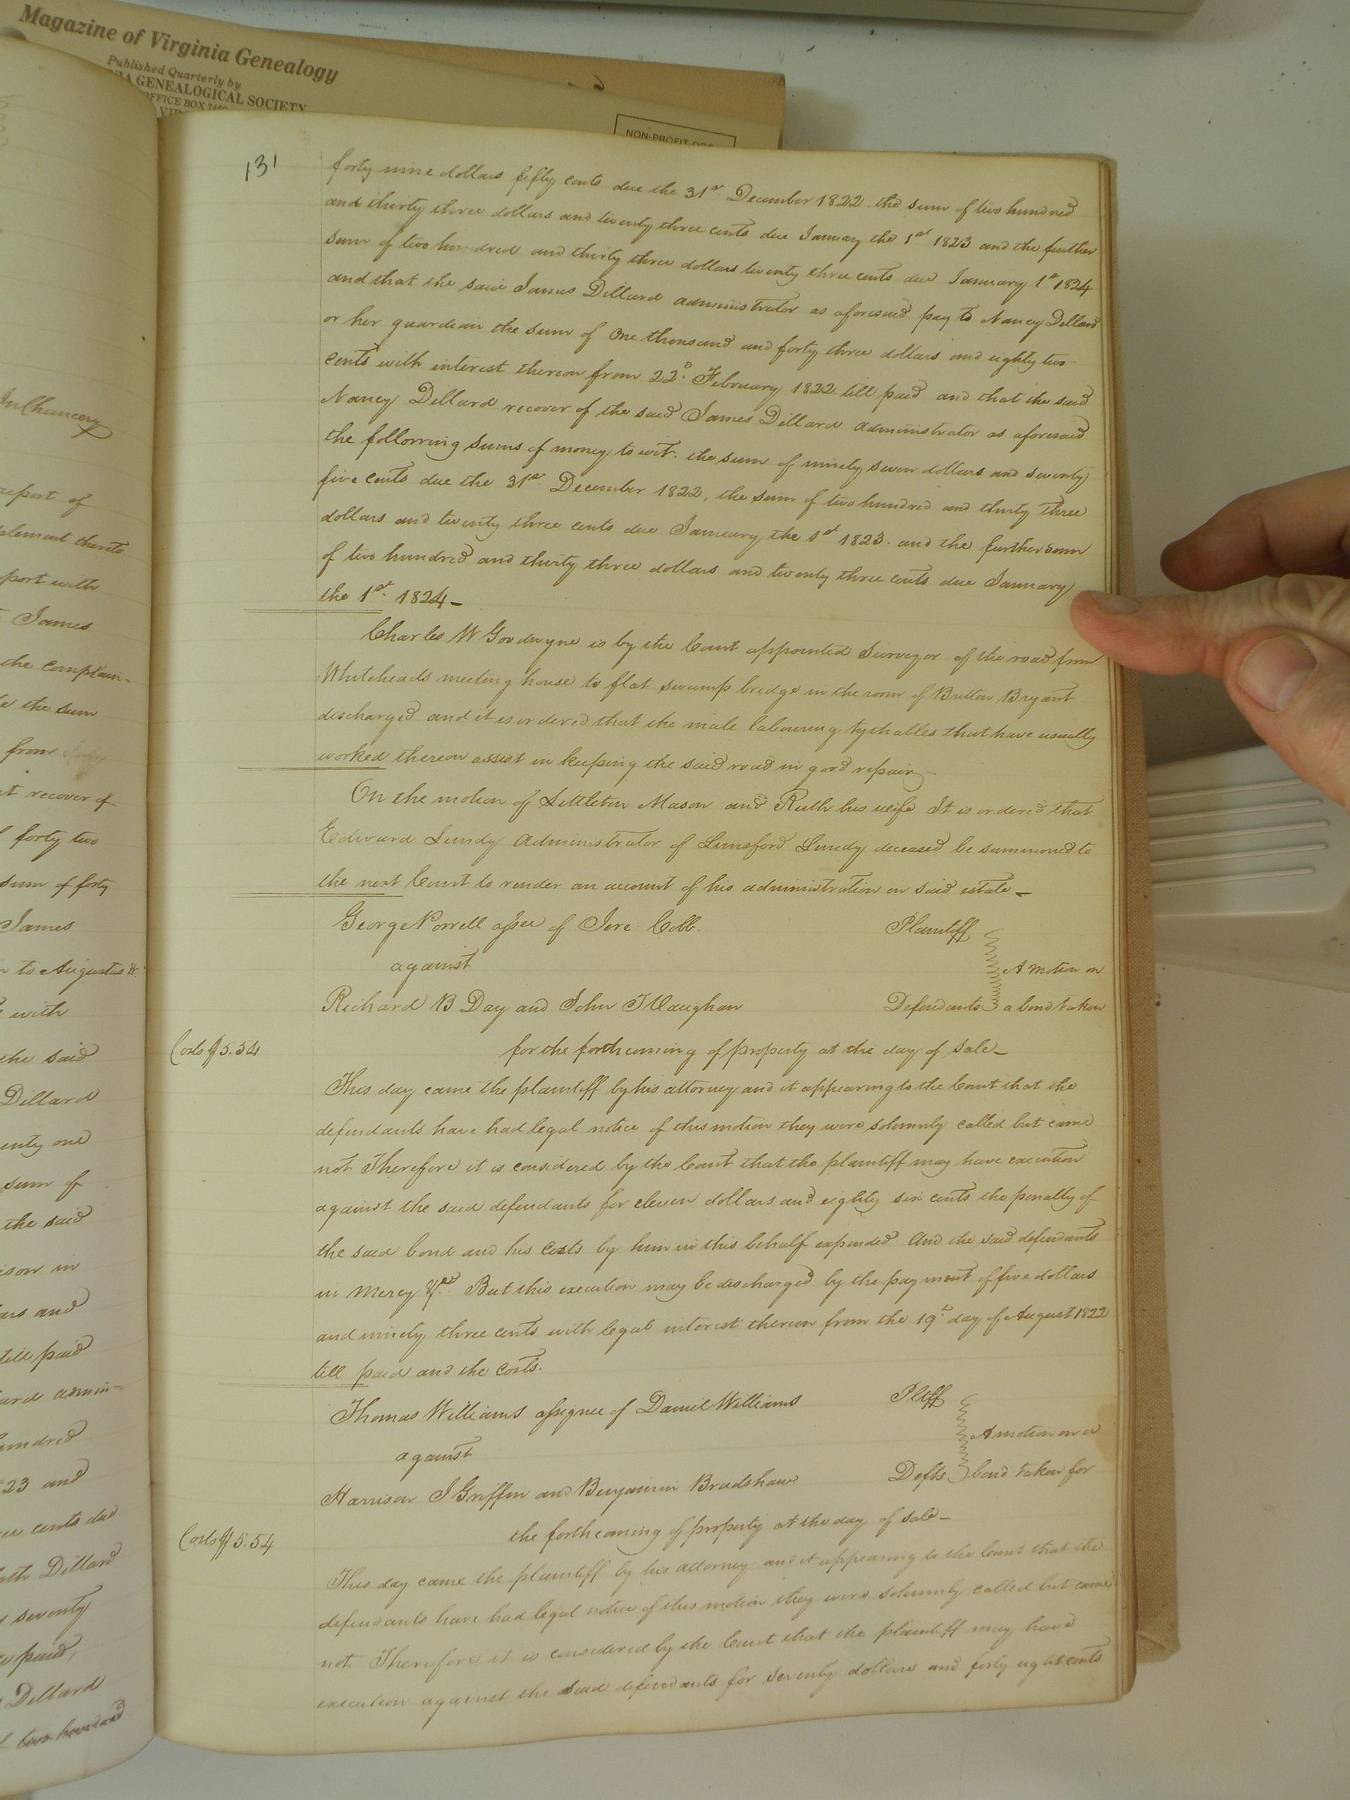 Magazine of Virginia Genealogy
Published Quarterly by
GENEALOGICAL SOCIETY
OFFICE BOX
NON-PROFIT ORG
In Chancery
report of
plement thereto
port with
James
the complain-
the sum
from
recover of
forty two
sum of forty
James
to Augustus W
with
the said
Dillard
enty one
sum of
the said
ison in
ars and
till paid
ard admin-
undred
23 and
cents due
Dillard
seventy
paid,
Dillard
two hundred
131
forty nine dollars fifty cents due the 31st December 1822 the sum of two hundred
and thirty three dollars and twenty three cents due January the 1st 1823 and the further
sum of two hundred and thirty three dollars twenty three cents due January 1st 1824
and that the said James Dillard administrator as aforesaid pay to Nancy Dillard
or her guardian the sum of One thousand and forty three dollars and eighty two
cents with interest thereon from 22d February 1822 till paid and that the said
Nancy Dillard recover of the said James Dillard administrator as aforesaid
the following sums of money to wit. the sum of ninety seven dollars and seventy
five cents due the 31st December 1822, the sum of two hundred and thirty three
dollars and twenty three cents due January the 1st 1823. and the further sum
of two hundred and thirty three dollars and twenty three cents due January
the 1st 1824—
Charles W Goodwyne is by the Court appointed Surveyor of the road from
Whiteheads meeting house to flat swamp bridge in the room of Britton Bryant
discharged and it is ordered that the male labouring tythables that have usually
worked thereon assist in keeping the said road in good repair—
On the motion of Littleton Mason and Ruth his wife It is ordered that
Edward Lundy Administrator of Lunsford Lundy deceased be summoned to
the next Court to render an account of his administration on said estate—
George Norvell assee of Jere Cobb. Plaintiff
against A motion on
Richard B Day and John T Vaughan Defendants a bond taken
Costs $5.54 for the forthcoming of property at the day of sale—
This day came the plaintiff by his attorney and it appearing to the Court that the
defendants have had legal notice of this motion they were solemnly called but came
not Therefore it is considered by the Court that the plaintiff may have execution
against the said defendants for eleven dollars and eighty six cents the penalty of
the said bond and his Costs by him in this behalf expended And the said defendants
in Mercy &c. But this execution may be discharged by the payment of five dollars
and ninety three cents with legal interest thereon from the 19th day of August 1822
till paid and the costs.
Thomas Williams assignee of Daniel Williams Pltff
against A motion on a
Harrison J Griffin and Benjamin Bradshaw Defts bond taken for
Costs $5.54 the forthcoming of property at the day of sale—
This day came the plaintiff by his attorney and it appearing to the Court that the
defendants have had legal notice of this motion they were solemnly called but came
not Therefore it is considered by the Court that the plaintiff may have
execution against the said defendants for seventy dollars and forty eight cents